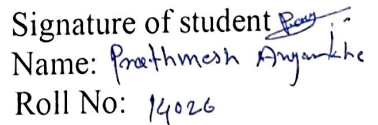 Signature of student
Name: Prathmesh
Roll No: 14026